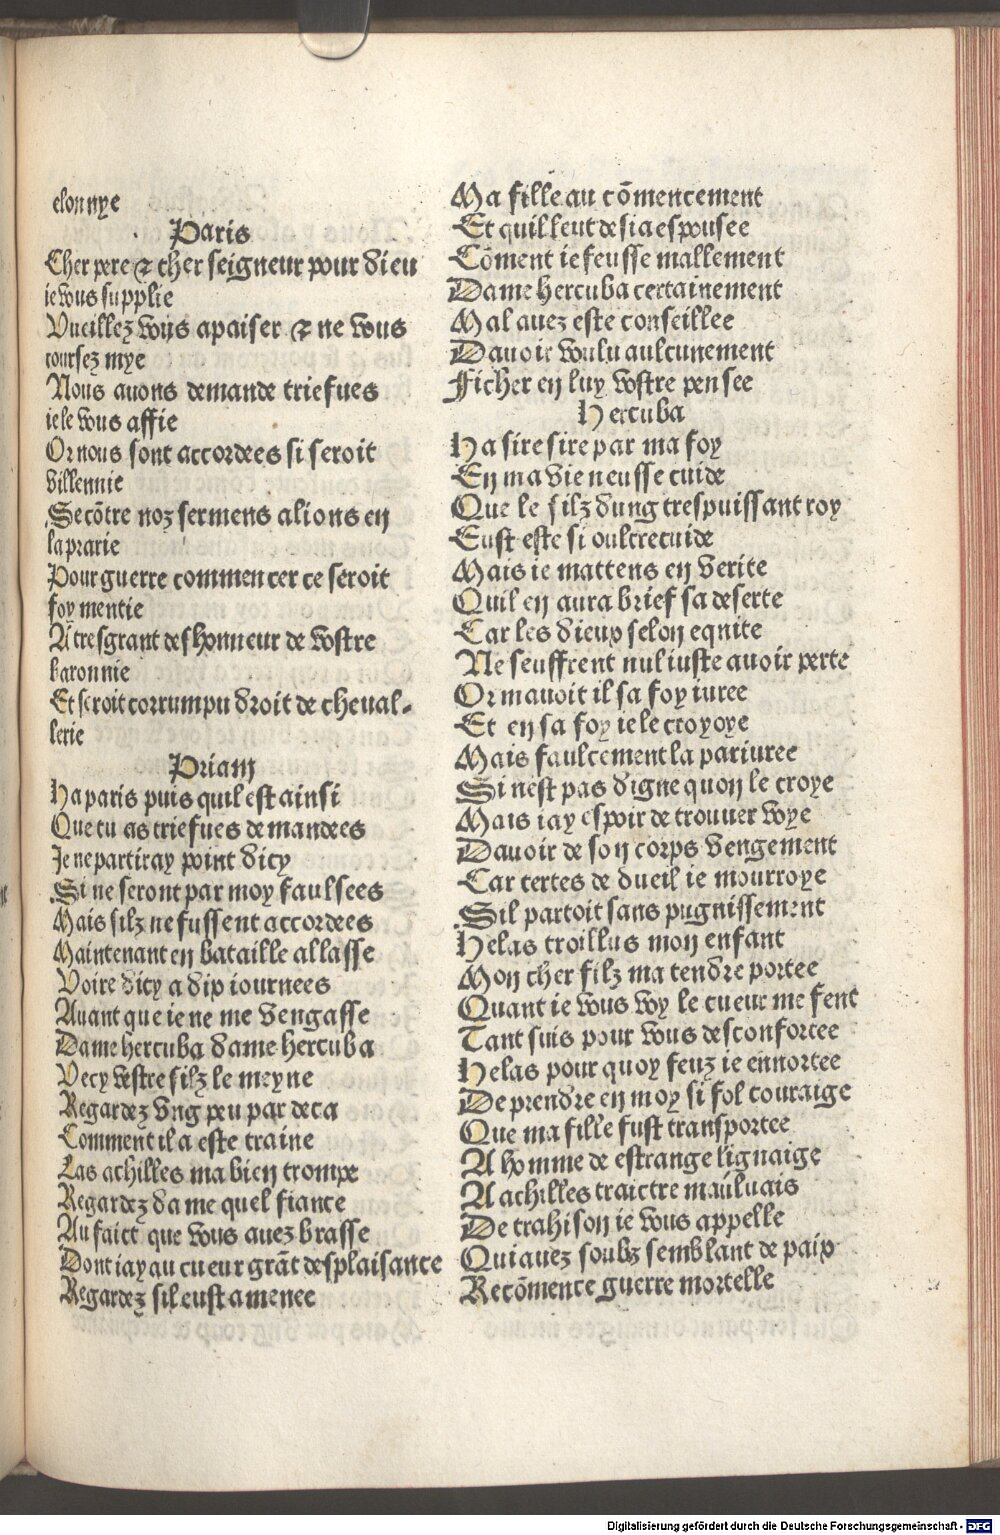 elonnye
Paris
Cher pere ⁊ cher seigneur pour dieu
ie vous supplie
Vueillez vous apaiser ⁊ ne vous
coursez mye
Nous auons demande triefues
ie le vous affie
Or nous sont accordees si seroit
villennie
Se cōtre noz sermens alions en
la prarie
Pour guerre commencer ce seroit
foy mentie
A tresgrant deshonneur de vostre
baronnie
Et seroit corrumpu droit de cheual-
lerie
Priam
Ha paris puis quil est ainsi
Que tu as triefues demandees
Je ne partiray point dicy
Si ne seront par moy faulsees
Mais silz ne fussent accordees
Maintenant en bataille allasse
Voire dicy a dix iournees
Auant que ie ne me vengasse
Dame hercuba dame hercuba
Vecy vestre filz le meyne
Regardez vng peu par deca
Comment il a este traine
Las achilles ma bien trompe
Regardez dame quel fiance
Au faict que vous auez brasse
Dont iay au cueur grāt desplaisance
Regardez sil eust amenee
Ma fille au cōmencement
Et quil leut desia espousee
Cōment ie feusse mallement
Dame hercuba certainement
Mal auez este conseillee
Dauoir voulu aulcunement
Ficher en luy vostre pensee
Hercuba
Ha sire sire par ma foy
En ma vie neusse cuide
Que le filz dung trespuissant roy
Eust este si oultrecuide
Mais ie mattens en verite
Quil en aura brief sa deserte
Car les dieux selon equite
Ne seuffrent nul iuste auoir perte
Or mauoit il sa foy iuree
Et en sa foy ie le croyoye
Mais faulcement la pariuree
Si nest pas digne quon le croye
Mais iay espoir de trouuer voye
Dauoir de son corps vengement
Car certes de dueil ie mourroye
Sil partoit sans pugnissement
Helas troillus mon enfant
Mon cher filz ma tendre portee
Quant ie vous voy le cueur me fent
Tant suis pour vous desconfortee
Helas pour quoy feuz ie ennortee
De prendre en moy si fol couraige
Que ma fille fust transportee
A homme de estrange lignaige
A achilles traictre mauluais
De trahison ie vous appelle
Qui auez soubz semblant de paix
Recōmence guerre mortelle
Digitalisierung gefördert durch die Deutsche Forschungsgemeinschaft - DFG